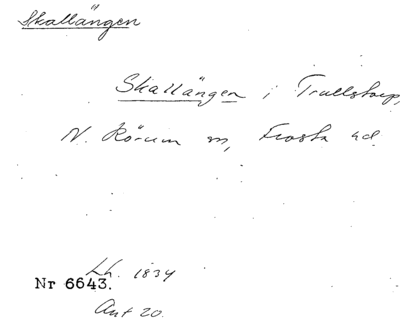 Skallängen
Skallängen i Trullstorp,
N. Rörum sn, Frosta hd.
Lh. 1834
Nr 6643.
Ant 20.